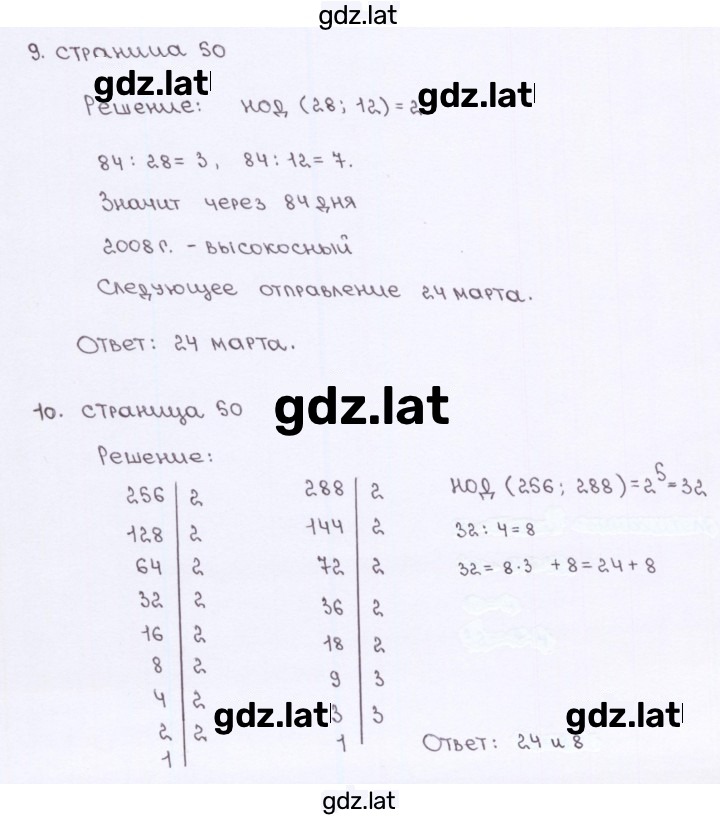 gdz.lat
9. страница 50
gdz.lat
Решение: НОД (28; 12) = 2
gdz.lat
84 : 28 = 3, 84 : 12 = 7.
Значит через 84 дня
2008 г. - высокосный
Следующее отправление 24 марта.
Ответ: 24 марта.
10. страница 50
gdz.lat
Решение:
256 | 2 288 | 2 НОД (256; 288) = 2⁵ = 32
128 | 2 144 | 2 32 : 4 = 8
64 | 2 72 | 2 32 = 8·3 + 8 = 24 + 8
32 | 2 36 | 2
16 | 2 18 | 2
8 | 2 9 | 3
4 | 2 3 | 3
gdz.lat gdz.lat
2 | 2 1 Ответ: 24 и 8
1
gdz.lat